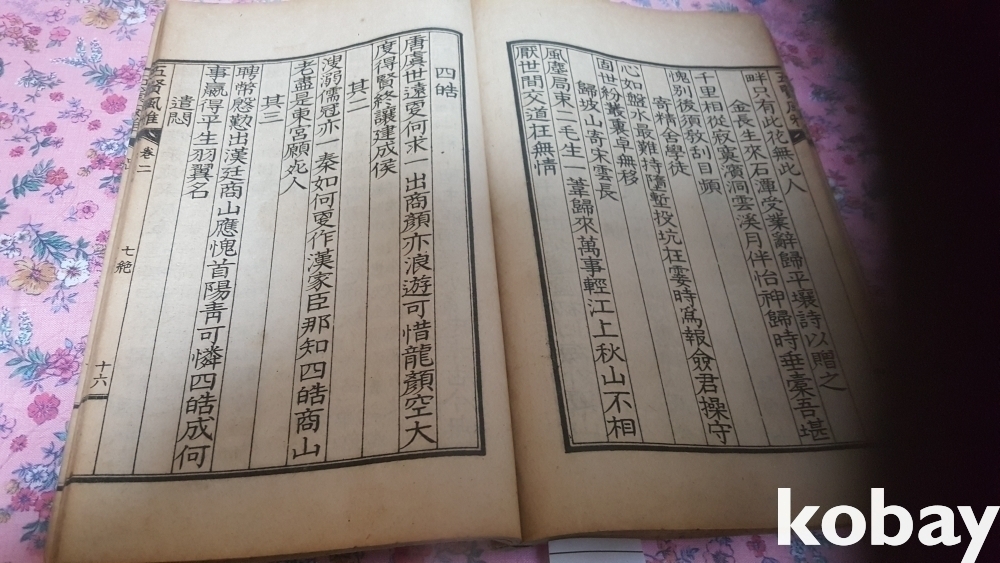 畔只有此花無此人
金長生來石潭受業辭歸平壤詩以贈之
千里相從寂寞濱洞雲溪月伴怡神歸時垂槖吾堪
愧別後須敎刮目頻
寄精舍學徒
心如盤水最難持墮塹投坑在霎時爲報僉君操守
固世紛叢裏卓無移
歸坡山寄宋雲長
風塵局束二毛生一葦歸來萬事輕江上秋山不相
厭世間交道在無情
四皓
唐虞世遠更何求一出商顔亦浪遊可惜龍顔空大
度得賢終讓建成侯
其二
溲溺儒冠亦一秦如何更作漢家臣那知四皓商山
老盡是東宮願死人
其三
聘幣慇懃出漢廷商山應愧首陽靑可憐四皓成何
事贏得平生羽翼名
遣悶
五賢風雅 卷二 七絶 十六
kobay